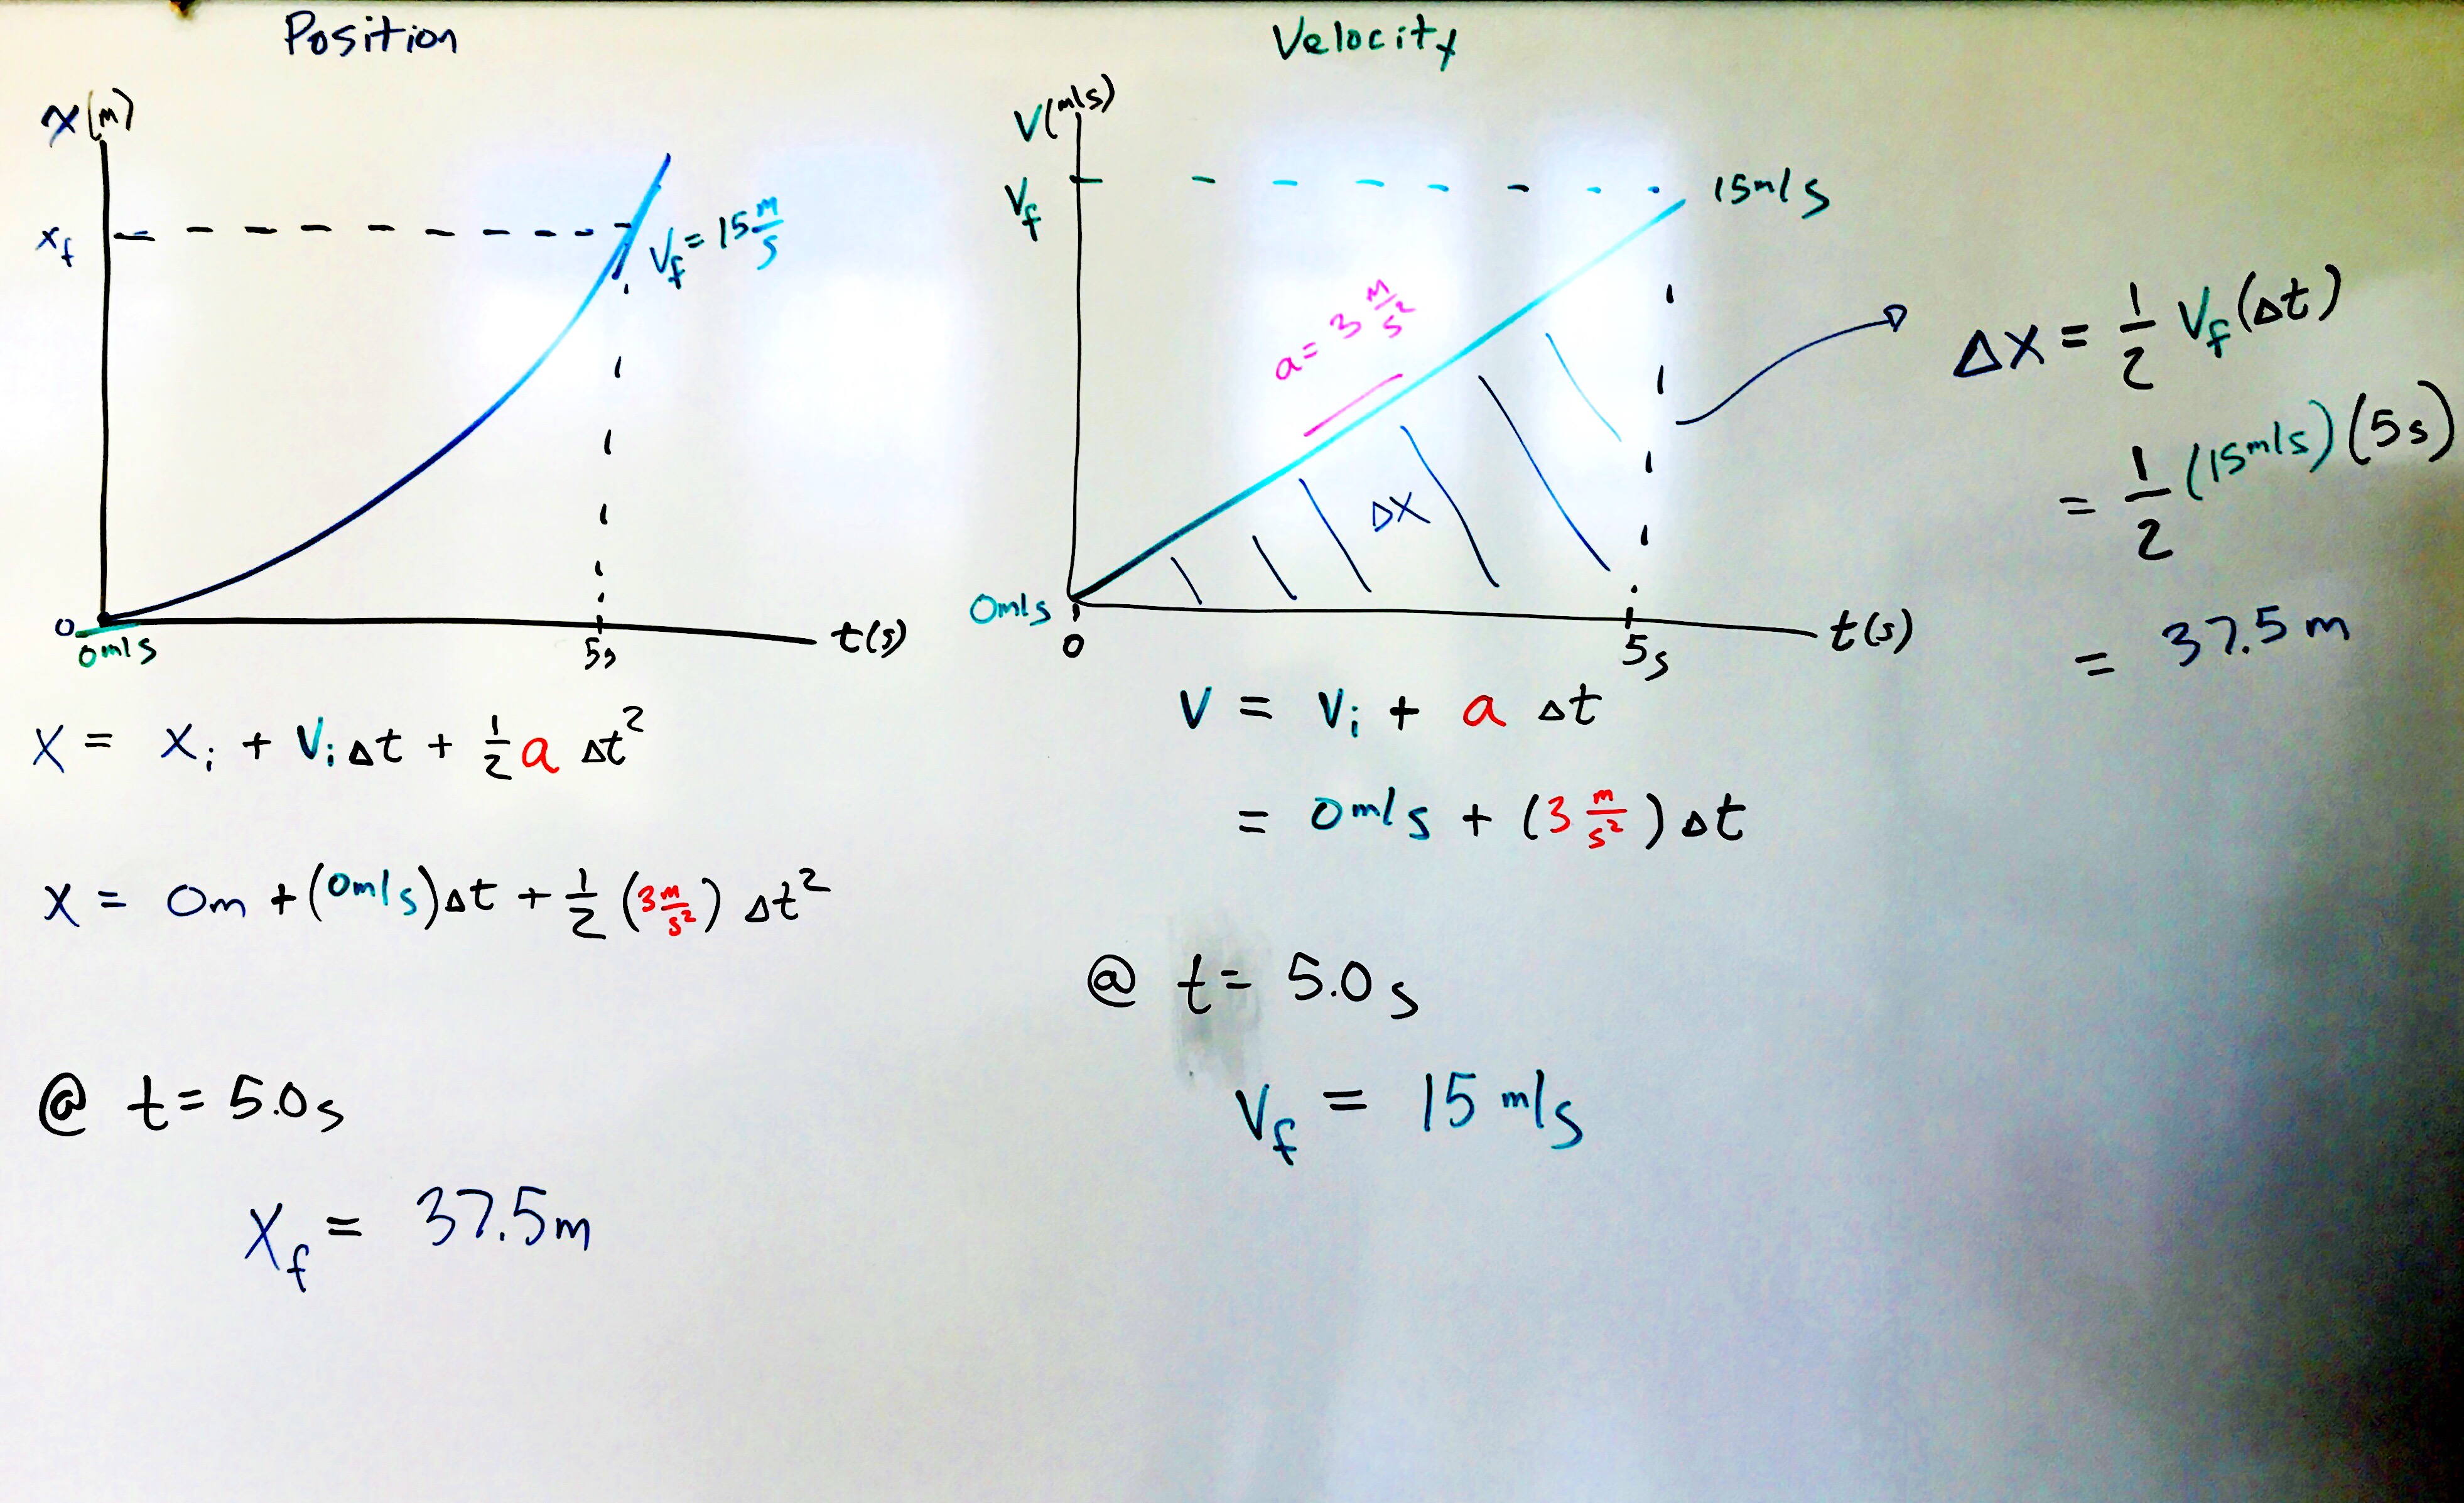 Position
x(m)
xf
Vf = 15 m/s
0
0m/s
5s
t(s)
x = xi + Vi Δt + 1/2 a Δt²
x = 0m + (0m/s)Δt + 1/2 (3 m/s²) Δt²
@ t = 5.0s
xf = 37.5m
Velocity
V(m/s)
Vf
15m/s
a = 3 m/s²
Δx
0m/s
0
5s
t(s)
V = Vi + a Δt
= 0m/s + (3 m/s²) Δt
@ t = 5.0s
Vf = 15 m/s
Δx = 1/2 Vf (Δt)
= 1/2 (15m/s)(5s)
= 37.5m